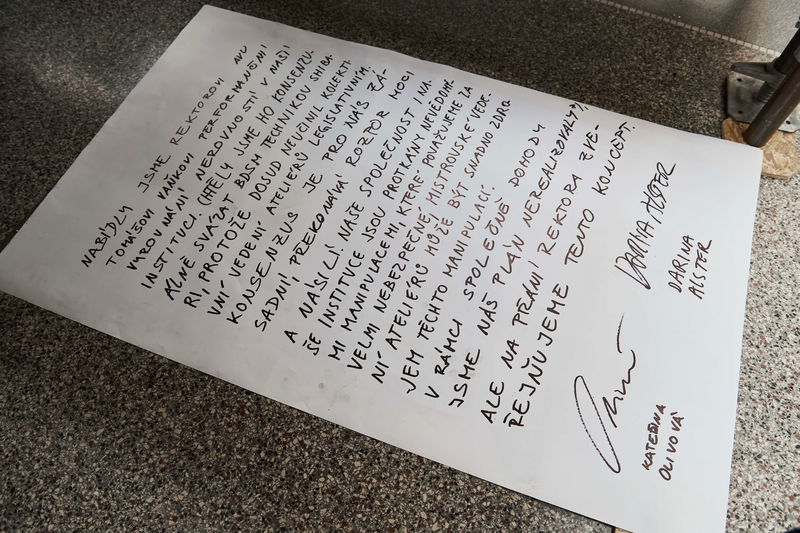 NABÍDLY JSME REKTOROVI AVU
TOMÁŠOVI VAŇKOVI PERFORMANČNÍ
VYROVNÁNÍ NEROVNOSTÍ V NAŠÍ
INSTITUCI. CHTĚLY JSME HO KONSENZU-
ÁLNĚ SVÁZAT BDSM TECHNIKOU SHIBA-
RI, PROTOŽE DOSUD NEUČINIL KOLEKTI-
VNÍ VEDENÍ ATELIERŮ LEGISLATIVNÍM.
KONSENZUS JE PRO NÁS ZÁ-
SADNÍ PŘEKONÁVÁ ROZPOR MOCI
A NÁSILÍ. NAŠE SPOLEČNOST I NA-
ŠE INSTITUCE JSOU PROTKÁNY NEVĚDOMÝ-
MI MANIPULACEMI, KTERÉ POVAŽUJEME ZA
VELMI NEBEZPEČNÉ, MISTROVSKÉ VEDE-
NÍ ATELIERŮ MŮŽE BÝT SNADNO ZDRO-
JEM TĚCHTO MANIPULACÍ.
V RÁMCI SPOLEČNÉ DOHODY
JSME NÁŠ PLÁN NEREALIZOVALY,
ALE NA PŘÁNÍ REKTORA ZVE-
ŘEJŇUJEME TENTO KONCEPT.
DARINA ALSTER
DARINA
ALSTER
KATEŘINA
OLIVOVÁ